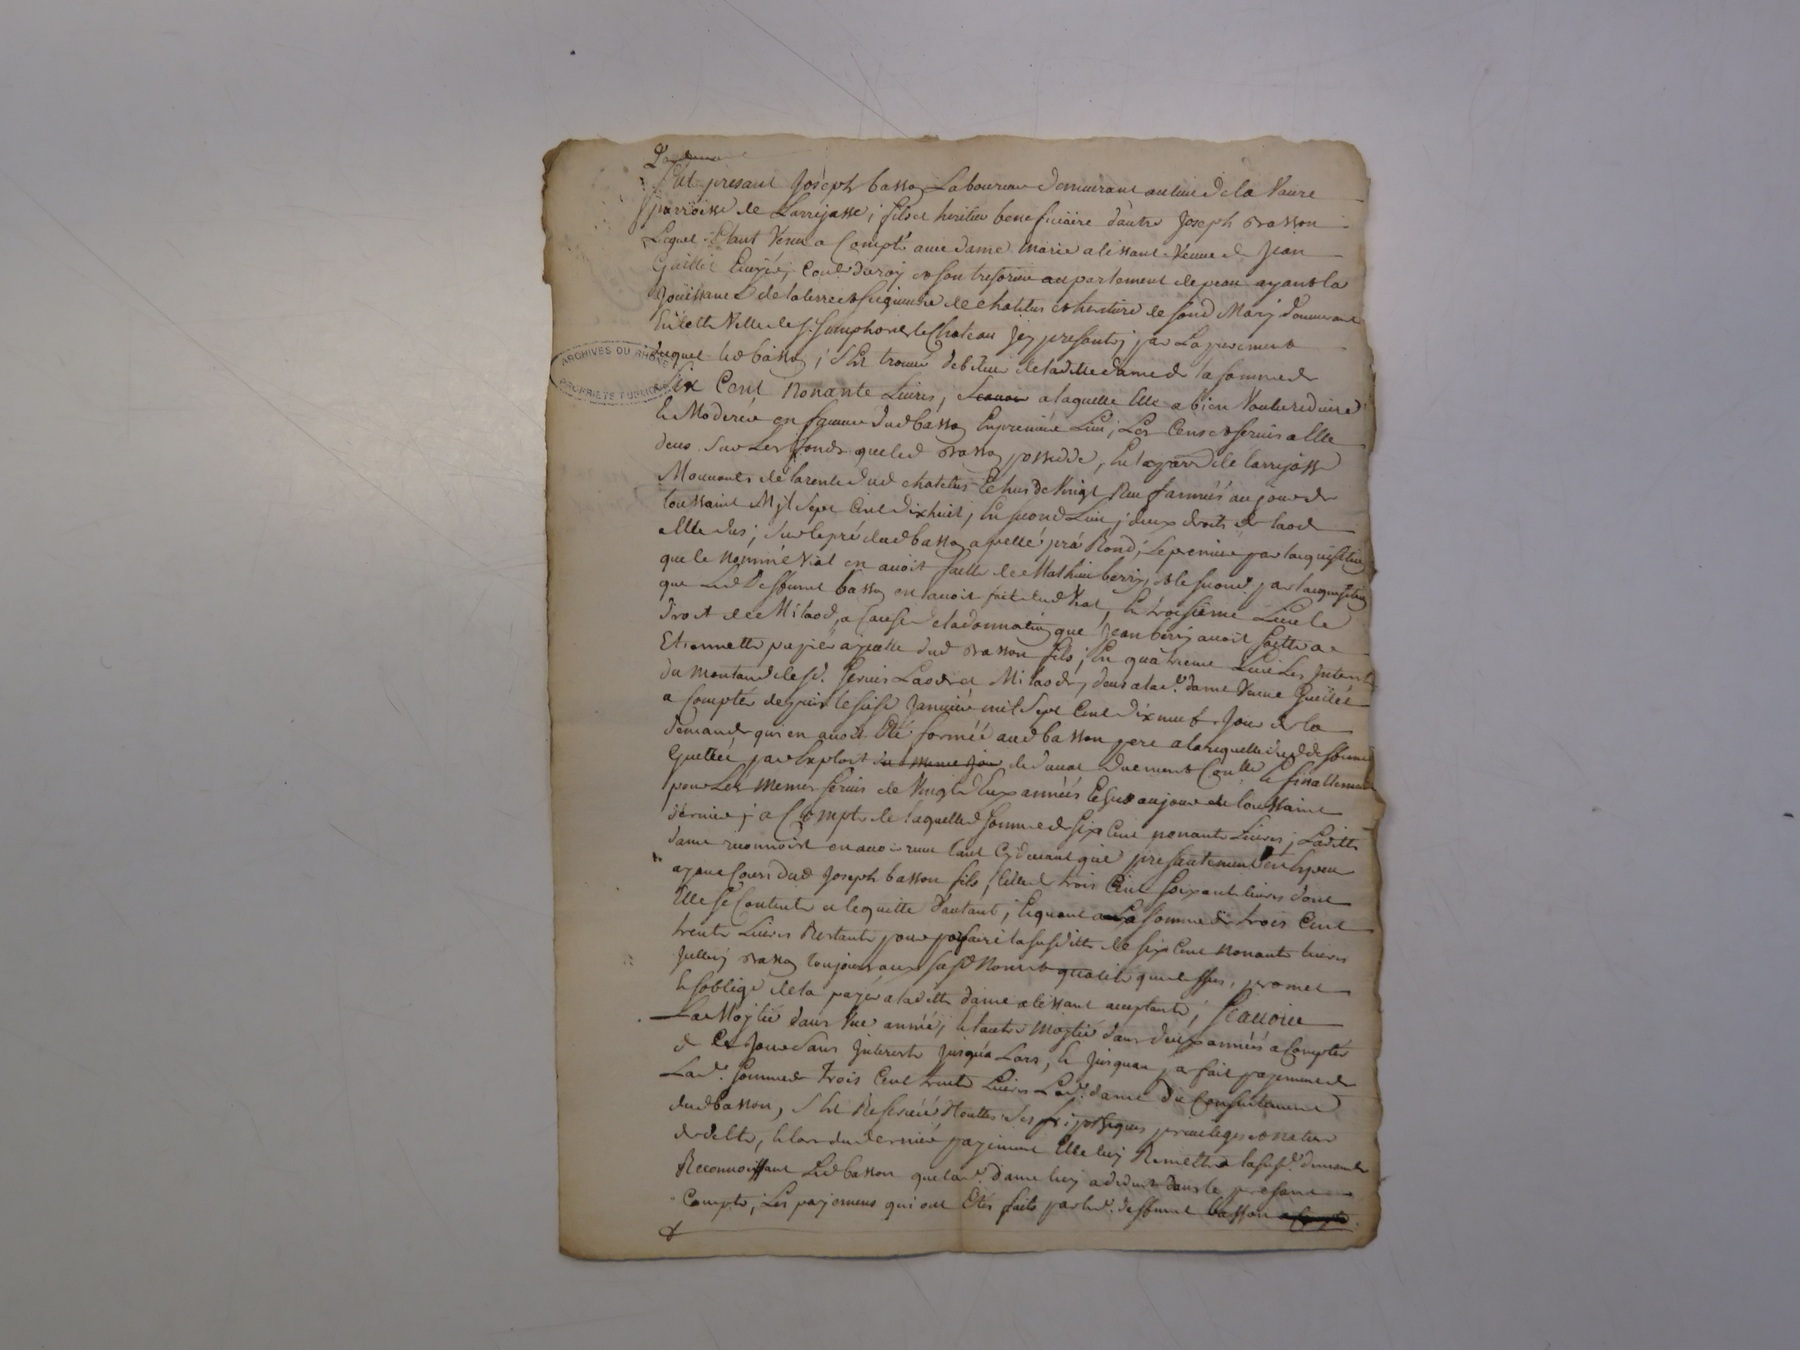 Fut presant Joseph basson Laboureur demeurant au lieu de la Vaure
parroisse de Larrejasse, fils et heritier beneficiaire d'autre Joseph Basson
Lequel Etant Venu a Compte avec dame Marie alissant Veuve de Jean
Escuyer, Con.er du roy et son tresorier au parlement ayant la
Jouissance de la terre et seigneurie de chatelus et heritiere de son d Mary demeurant
En cette Ville de St Simphorien le Chateau Jcy presante, par
lequel led basson, s'Est trouvé debiteur de laditte dame de la somme de
ARCHIVES DU RHÔNE PROPRIETE PUBLIQUE
Six Cent Nonante Livres, a laquelle Elle a bien Voulu reduire
et Moderer en faveur dud basson En premier Lieu, Les Cens et servis a Elle
deus sur Les fonds que led Basson possedde, En la parr de larrejasse
Mouvants de la rente dud chatelus Echus de Vingt Neuf années au jour de
toussaint Mil Sept Cent dixhuit, En second Lieu, deux droits de laod
a Elle dus, sur le pré dud basson appellé pré Rond, Le premier par lacquisition
que le nommé Vial en avoit faitte de Mathieu berry, et le second par lacquisition
que Led deffunt basson en avoit fait dud Vial, En troisieme Lieu le
droit de Milaod, a Cause de la donnation que Jean berry avoit faitte a
Etiennette dud Basson fils; En quatrieme Lieu Les Interets
du montant desd. servis Laods et Milaods, deus a lad. dame Veuve
a Compter depuis le Janvier mil Sept Cent dix neuf Jour de la
demande qui en avoit Eté formée aud basson pere a la requette dud deffunt
par Exploit du meme Jour de duement Et finallement
pour Les memes servis de Vingt années Echus au jour de toussaint
dernier; a Compte de laquelle somme de six Cent nonante Livres, Laditte
dame reconnoist en avoir reçu tant Cydevant que presantement en
ayant Cours dud Joseph basson fils, Celle de trois Cent soixante livres dont
Elle se Contente et le quitte d'autant; Et quant a La somme de trois Cent
trente Livres Restante pour parfaire la susditte de six Cent nonante livres
Basson toujours aux susd Noms et qualité que dessus, promet
et soblige de la payer a laditte dame alissant acceptante, Scavoir
La Moytié dans Une année, et l'autre Moytié dans deux années a Compter
de Ce Jour Sans Interests Jusqu'a Lors, et Jusques a fait payement de
Lad. somme de Trois Cent trente Livres Lad. dame du Consentement
dud basson, s'Est Reservée touttes ses hipotheques privileges et nature
de dette, et lors du dernier payement Elle luy Remettra la susd. demande
Reconnoissant Led basson que lad. dame luy a deduit dans le presant
Compte, Les payemens qui ont Etés faits par led. deffunt basson